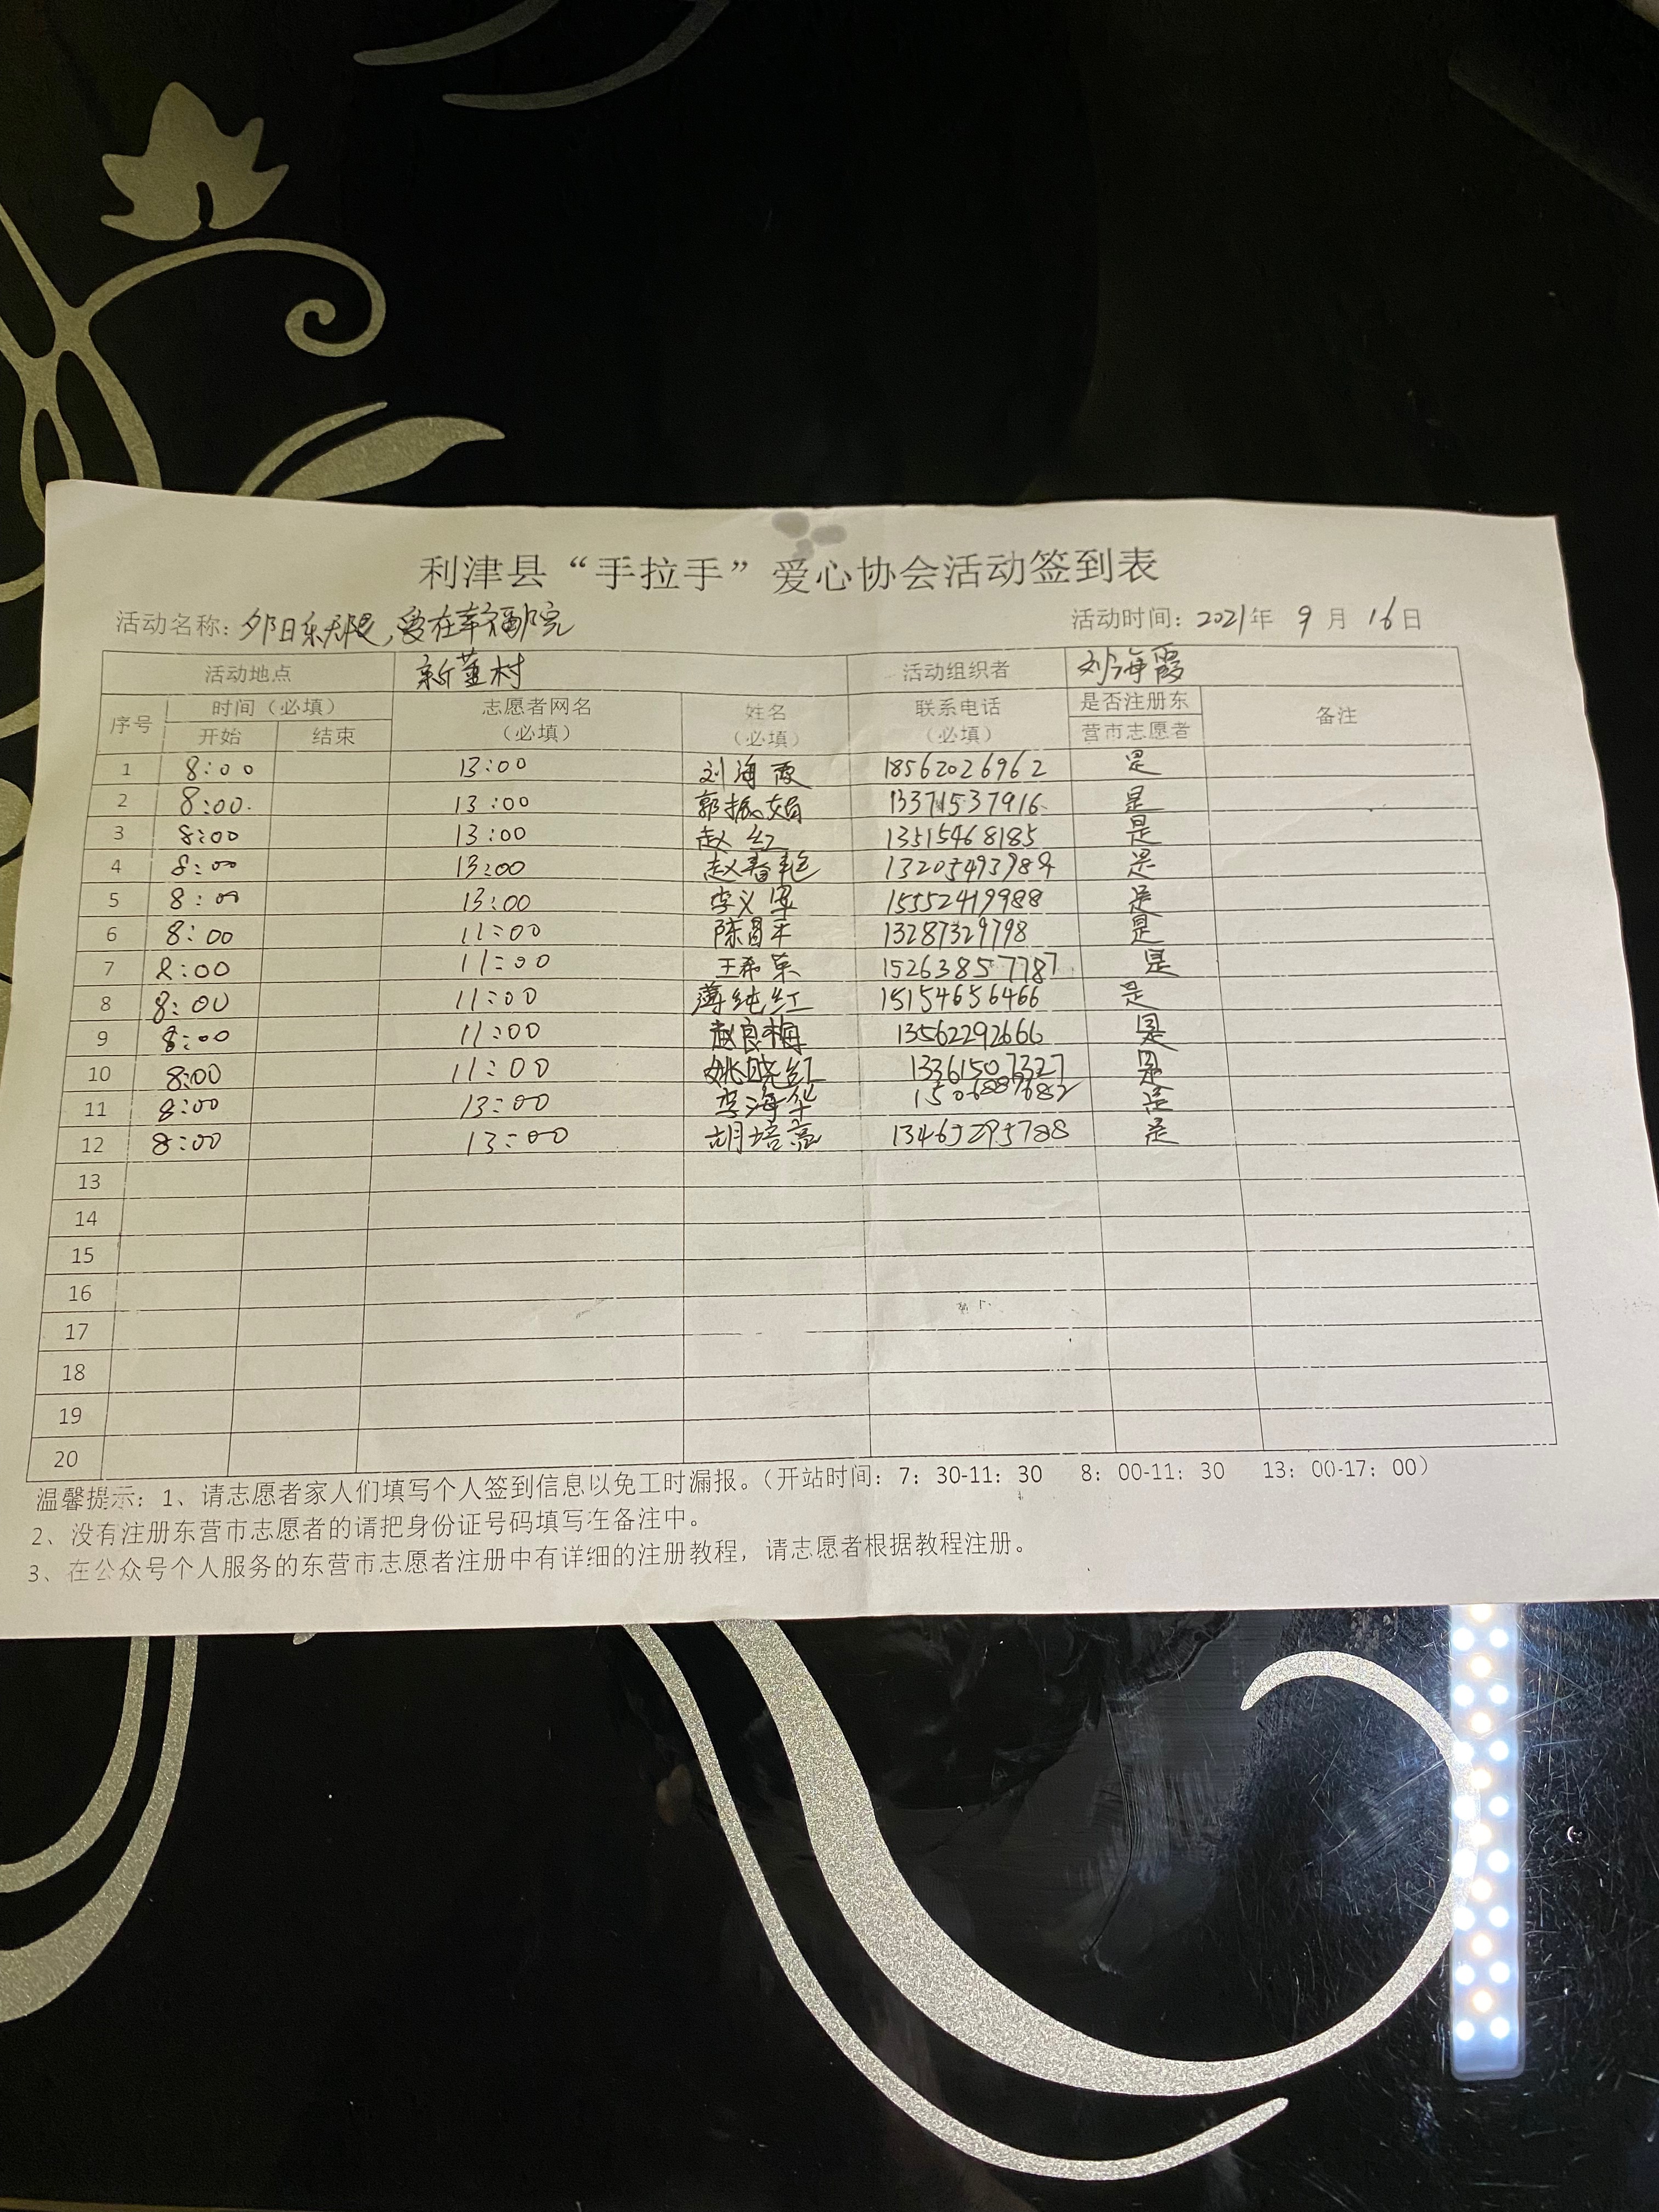 利津县“手拉手”爱心协会活动签到表
活动名称：夕阳乐无限，爱在幸福院 活动时间：2021年 9 月 16日
活动地点 新董村 活动组织者 刘海霞
序号 时间（必填） 志愿者网名（必填） 姓名（必填） 联系电话（必填） 是否注册东营市志愿者 备注
开始 结束
1 8:00 13:00 刘海霞 18562026962 是
2 8:00 13:00 郭振娟 13371537916 是
3 8:00 13:00 赵红 13515468185 是
4 8:00 13:00 赵春艳 是
5 8:00 13:00 李义军 15552419988 是
6 8:00 11:00 陈昌禾 13287329798 是
7 8:00 11:00 王希荣 15263857787 是
8 8:00 11:00 薄纯红 15154656466 是
9 8:00 11:00 赵良梅 13562292666 是
10 8:00 11:00 姚晓红 13361507327 是
11 8:00 13:00 李海华 15068897682 是
12 8:00 13:00 胡培亮 13465295788 是
13
14
15
16
17
18
19
20
温馨提示：1、请志愿者家人们填写个人签到信息以免工时漏报。（开站时间：7：30-11：30 8：00-11：30 13：00-17：00）
2、没有注册东营市志愿者的请把身份证号码填写在备注中。
3、在公众号个人服务的东营市志愿者注册中有详细的注册教程，请志愿者根据教程注册。